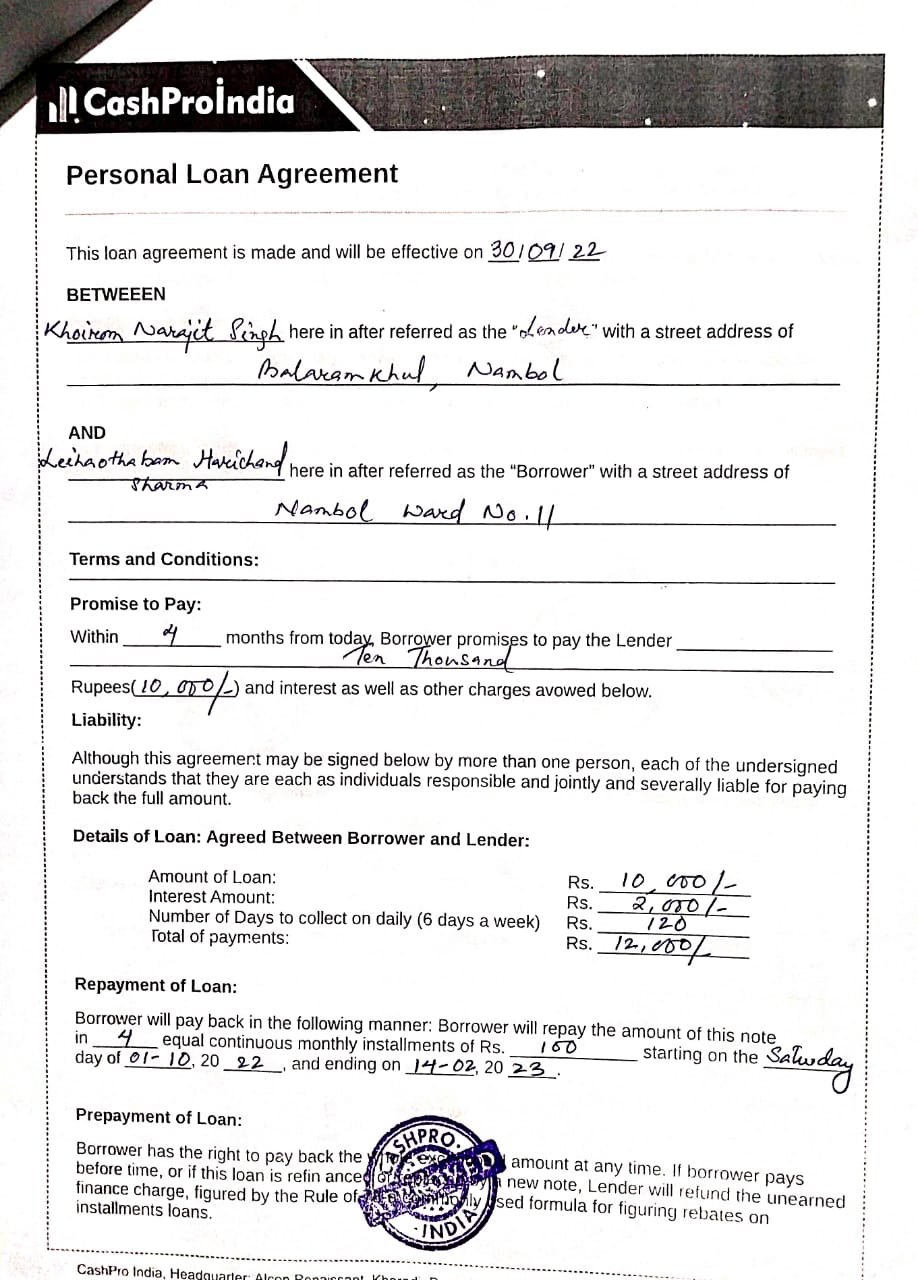 CashProIndia
Personal Loan Agreement
This loan agreement is made and will be effective on 30/09/22
BETWEEEN
Khoirom Narajit Singh here in after referred as the "Lender" with a street address of
Balaram Khul, Nambol
AND
Leihaothabam Harichand here in after referred as the “Borrower” with a street address of
Sharma
Nambol Ward No. 11
Terms and Conditions:
Promise to Pay:
Within 4 months from today, Borrower promises to pay the Lender
Ten Thousand
Rupees(10,000/-) and interest as well as other charges avowed below.
Liability:
Although this agreement may be signed below by more than one person, each of the undersigned
understands that they are each as individuals responsible and jointly and severally liable for paying
back the full amount.
Details of Loan: Agreed Between Borrower and Lender:
Amount of Loan: Rs. 10,000/-
Interest Amount: Rs. 2,000/-
Number of Days to collect on daily (6 days a week) Rs. 120
Total of payments: Rs. 12,000/-
Repayment of Loan:
Borrower will pay back in the following manner: Borrower will repay the amount of this note
in 4 equal continuous monthly installments of Rs. 100 starting on the Saturday
day of 01-10, 20 22, and ending on 14-02, 20 23.
Prepayment of Loan:
Borrower has the right to pay back the amount at any time. If borrower pays
before time, or if this loan is refin anced new note, Lender will refund the unearned
finance charge, figured by the Rule of sed formula for figuring rebates on
installments loans.
CASHPRO
INDIA
CashPro India, Headquarter: